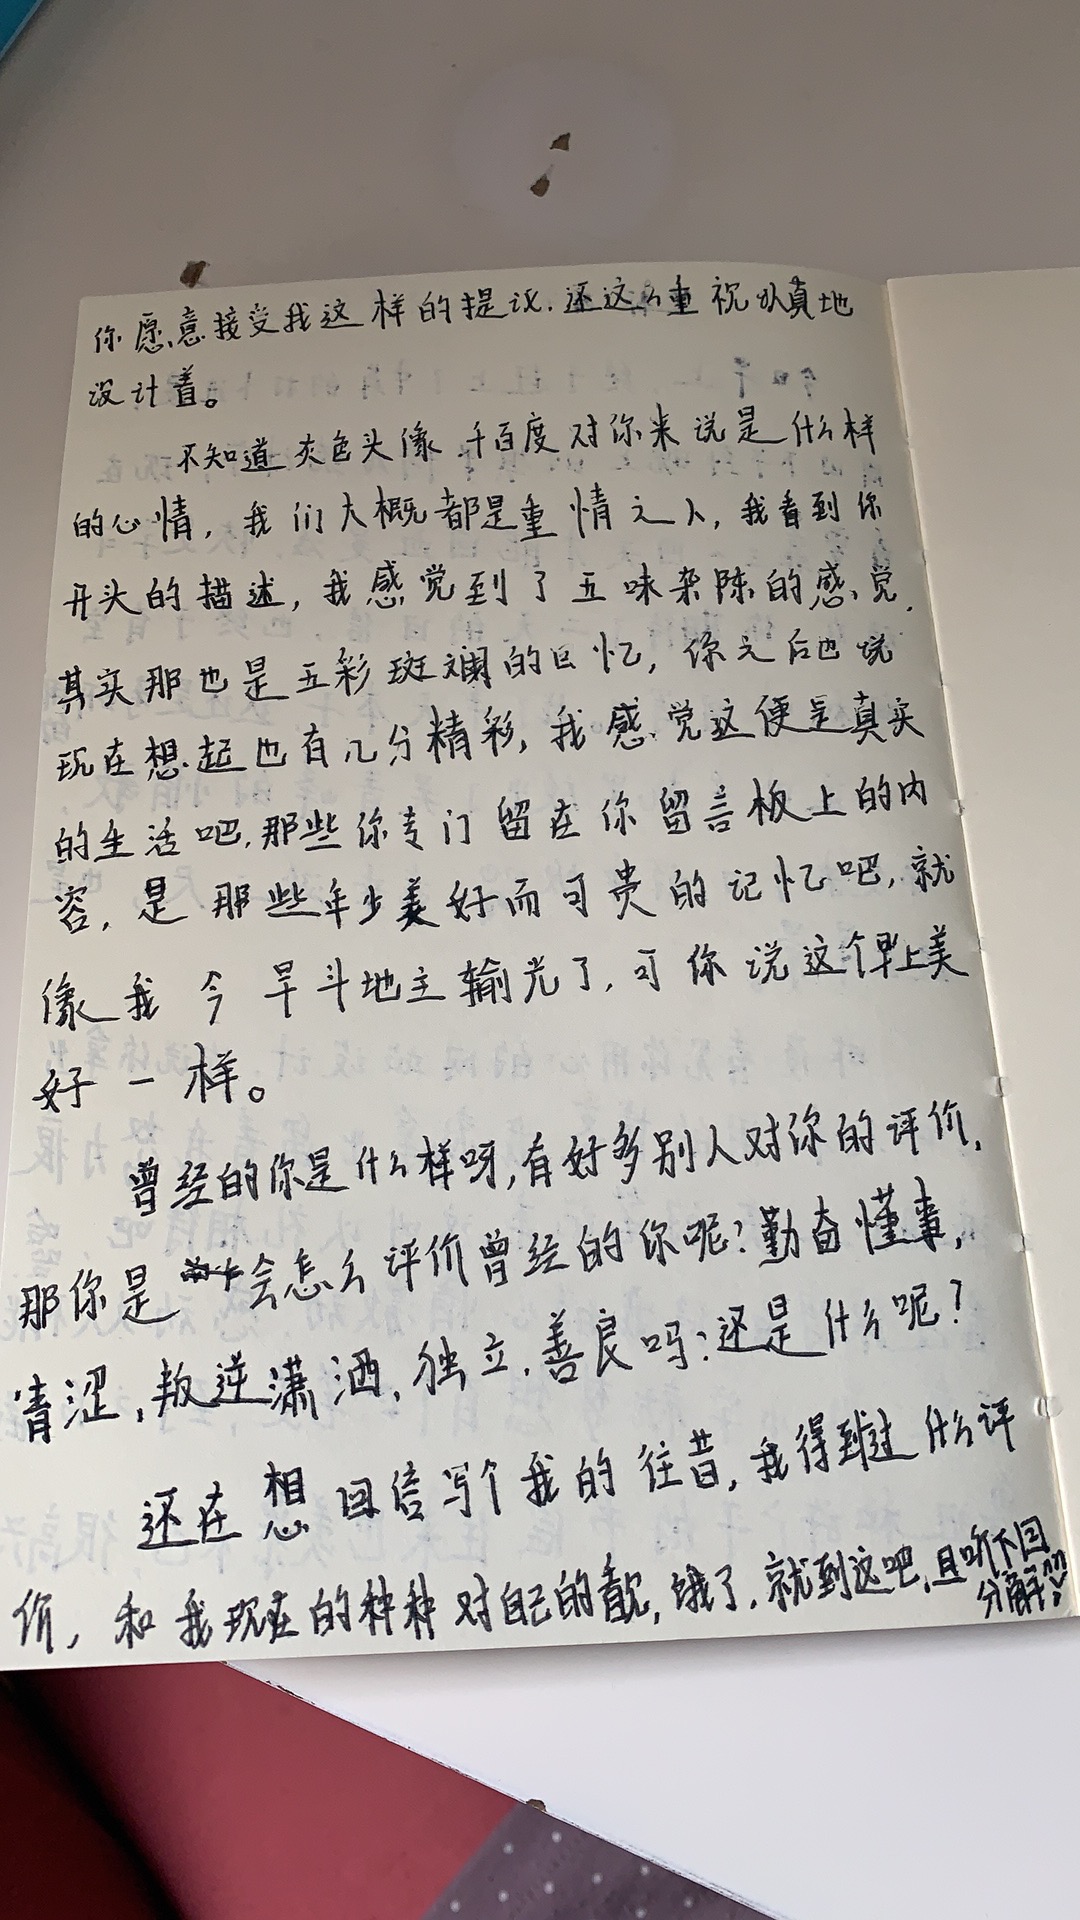 你愿意接受我这样的提议.还这么重视认真地
设计着。
不知道灰色头像.千百度对你来说是什么样
的心情，我们大概都是重情之人，我看到你
开头的描述，我感觉到了五味杂陈的感觉.
其实那也是五彩斑斓的回忆，你之后也说
现在想起也有几分精彩，我感觉这便是真实
的生活吧.那些你专门留在你留言板上的内
容，是那些年少美好而可贵的记忆吧，就
像我今早斗地主输光了，可你说这个早上美
好一样。
曾经的你是什么样呀，有好多别人对你的评价，
那你是会怎么评价曾经的你呢？勤奋懂事，
青涩，叛逆潇洒，独立.善良吗？还是什么呢？
还在想回信写个我的往昔，我得到过什么评
价，和我现在的种种对自己的，饿了，就到这吧，且听下回
分解